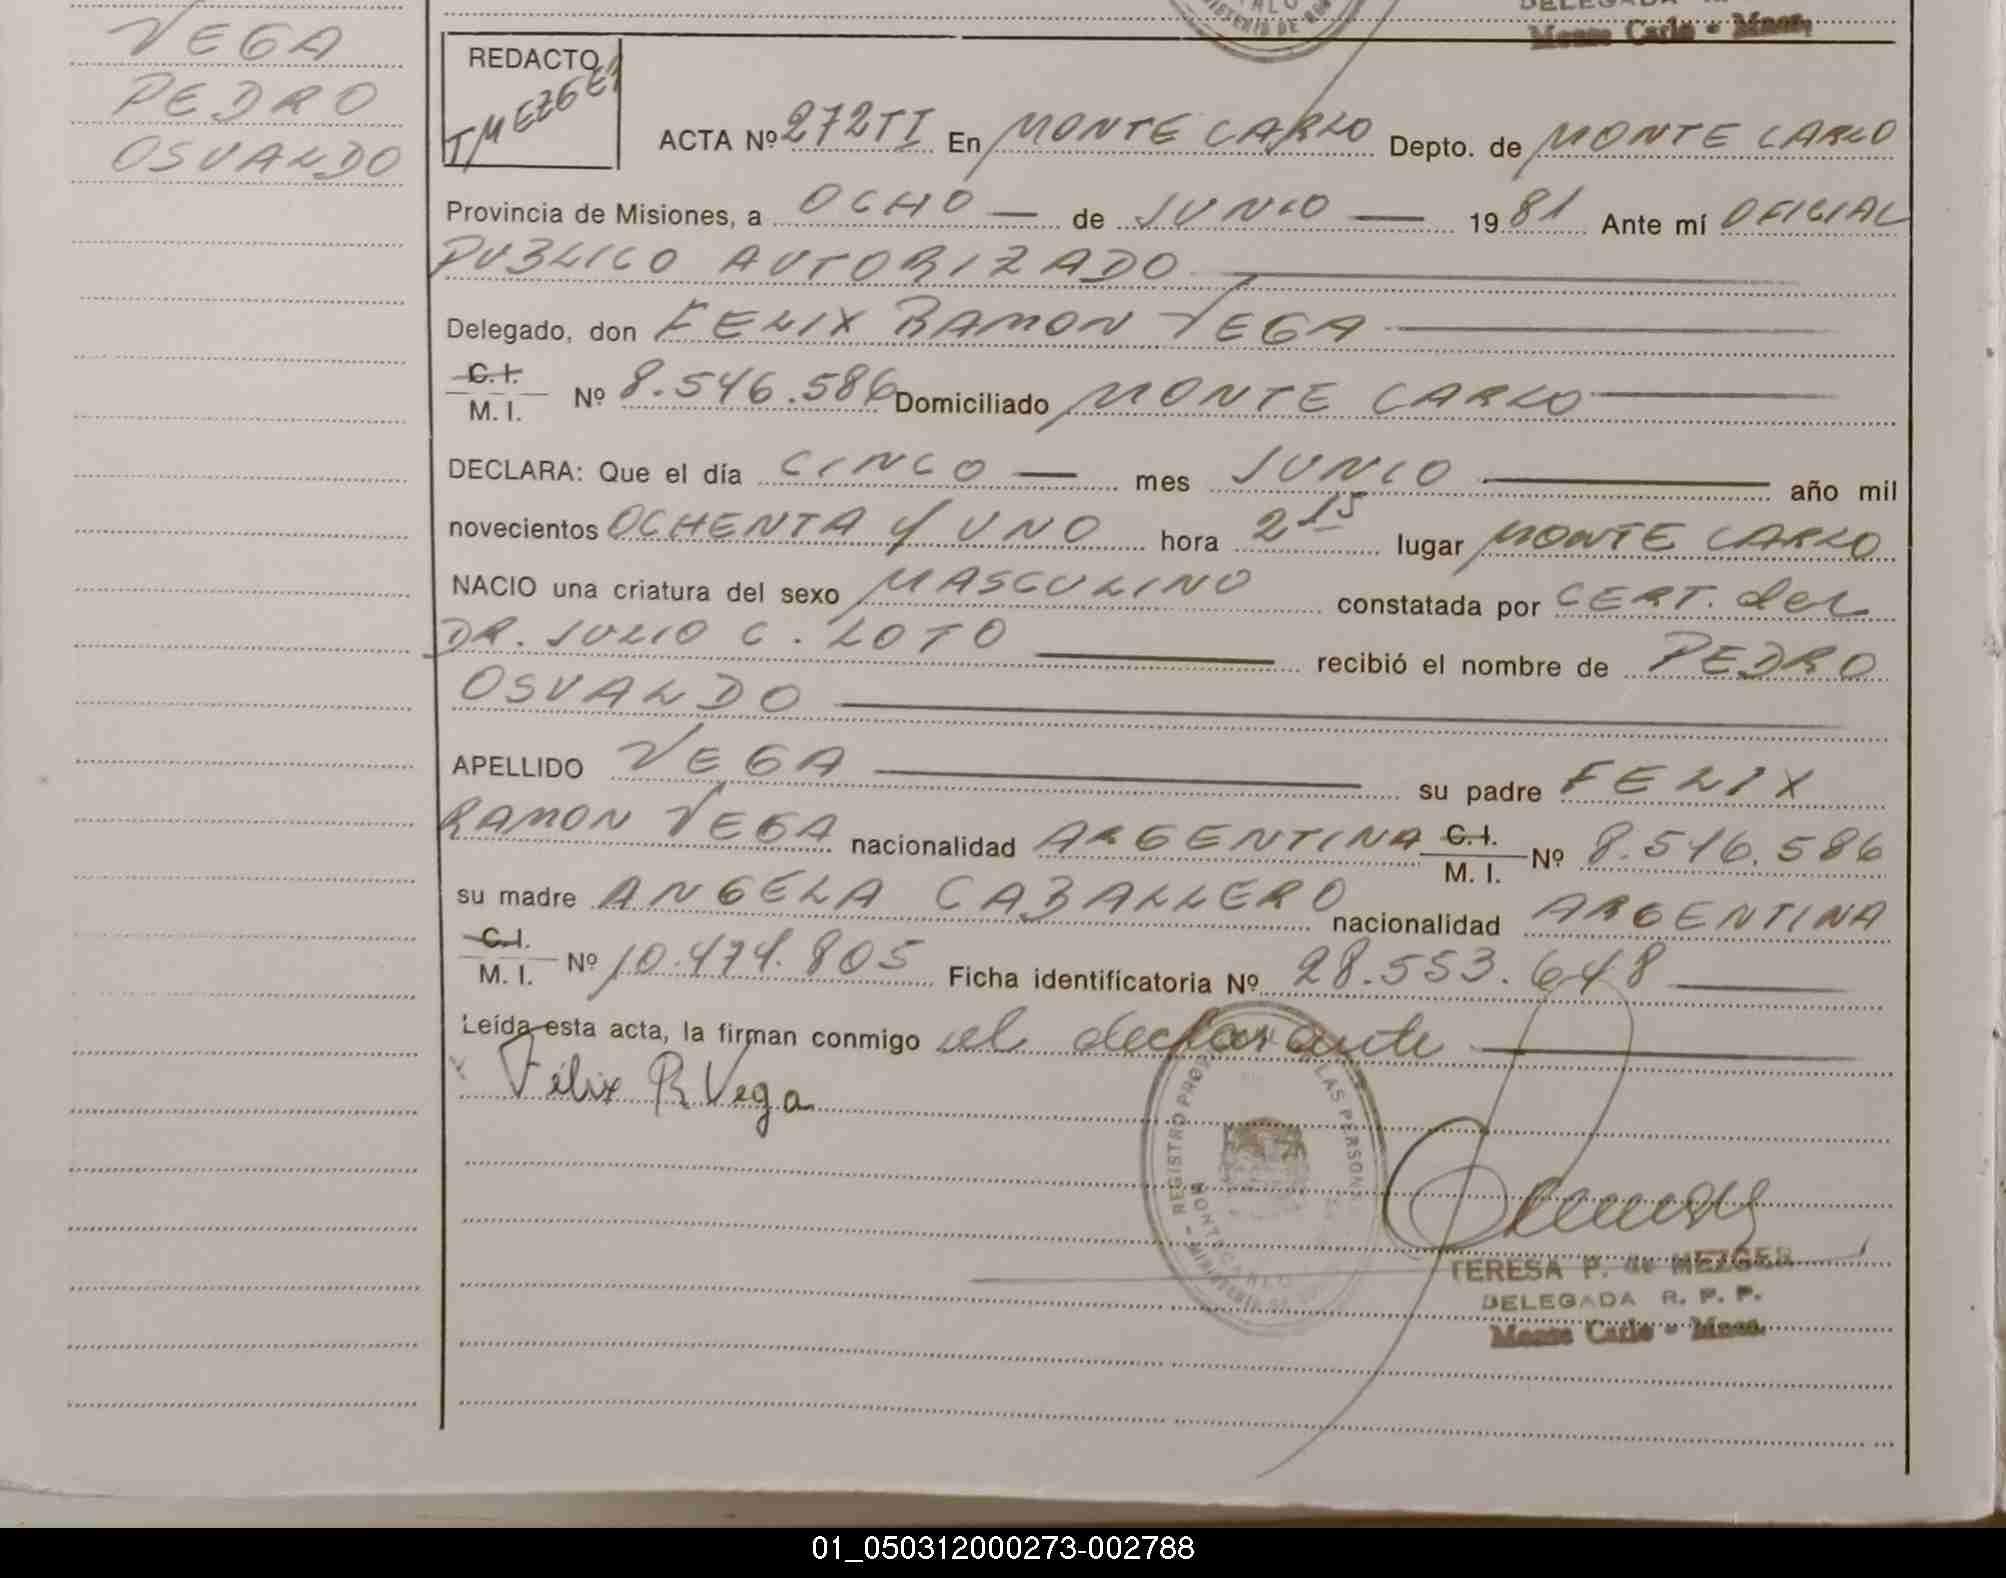 VEGA
PEDRO
OSVALDO
Monte Carlo - Mnes.
REDACTO
TMEZGER
ACTA Nº 272TI En MONTE CARLO Depto. de MONTE CARLO
Provincia de Misiones, a OCHO — de JUNIO — 1981 Ante mí OFICIAL
PUBLICO AUTORIZADO
Delegado, don FELIX RAMON VEGA
C.I. M. I. Nº 8.546.586 Domiciliado MONTE CARLO
DECLARA: Que el día CINCO — mes JUNIO — año mil
novecientos OCHENTA Y UNO hora 2 15 lugar MONTE CARLO
NACIO una criatura del sexo MASCULINO constatada por CERT. del
DR. JULIO C. LOTO — recibió el nombre de PEDRO
OSVALDO
APELLIDO VEGA — su padre FELIX
RAMON VEGA nacionalidad ARGENTINA C.I. M. I. Nº 8.546.586
su madre ANGELA CABALLERO nacionalidad ARGENTINA
C.I. M. I. Nº 10.474.805 Ficha identificatoria Nº 28.553.648
Leída esta acta, la firman conmigo el declarante
Félix R Vega
REGISTRO PROV LAS PERSONAS
MONTECARLO
MINISTERIO DE
TERESA P. de MEZGER
DELEGADA R. P. P.
Monte Carlo - Mnes.
01_050312000273-002788